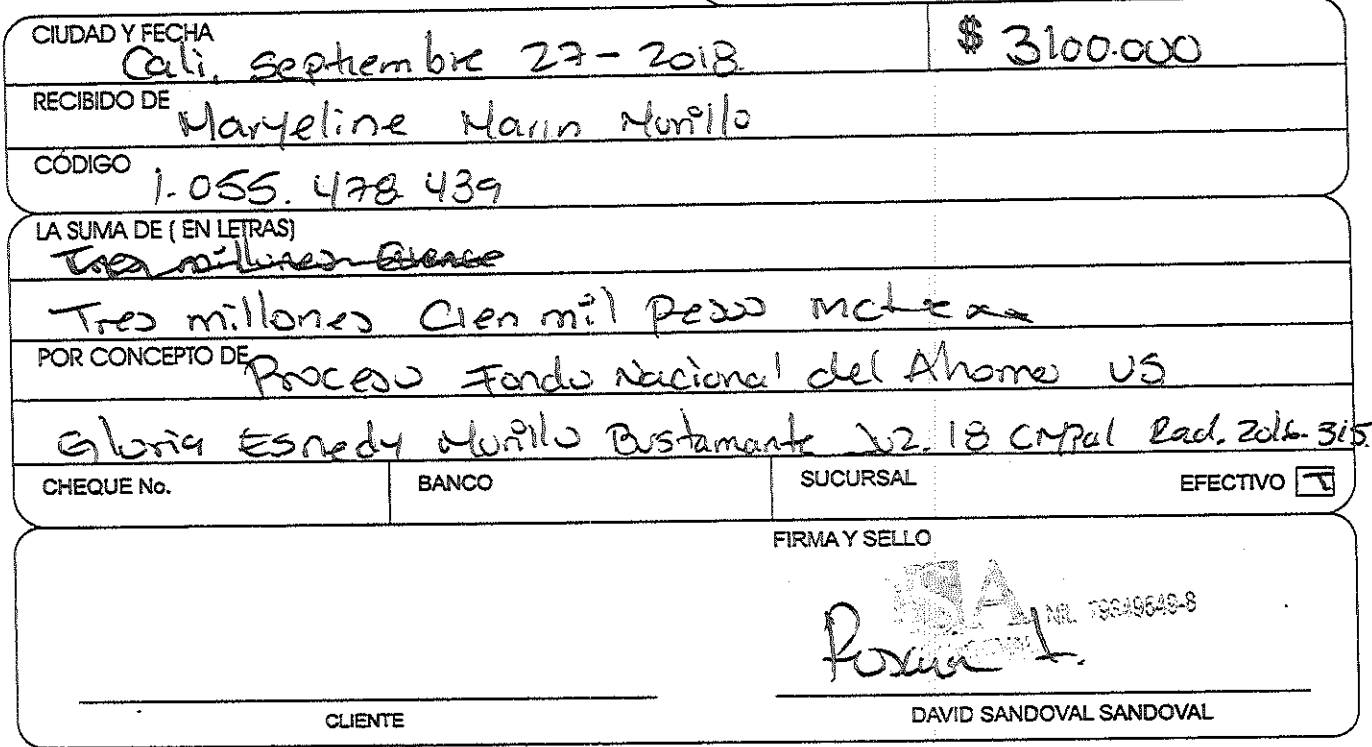 CIUDAD Y FECHA
Cali. Septiembre 27-2018.
$ 3100.000
RECIBIDO DE
Maryeline Marin Murillo
CÓDIGO
1.055.478 439
LA SUMA DE ( EN LETRAS)
Tres millones
Tres millones Cien mil pesos mcte xx
POR CONCEPTO DE Proceso Fondo Nacional del Ahorro VS
Gloria Esnedy Murillo Bustamante Juz. 18 CMPal Rad. 2016-315
CHEQUE No. BANCO SUCURSAL EFECTIVO
FIRMA Y SELLO
SA
CLIENTE
DAVID SANDOVAL SANDOVAL